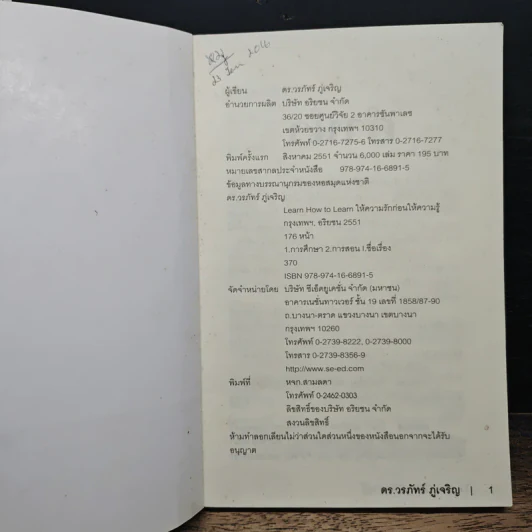 23 Jan 2016
ผู้เขียน ดร.วรภัทร์ ภู่เจริญ
อำนวยการผลิต บริษัท อริยชน จำกัด
36/20 ซอยศูนย์วิจัย 2 อาคารชันพาเลซ
เขตห้วยขวาง กรุงเทพฯ 10310
โทรศัพท์ 0-2716-7275-6 โทรสาร 0-2716-7277
พิมพ์ครั้งแรก สิงหาคม 2551 จำนวน 6,000 เล่ม ราคา 195 บาท
หมายเลขสากลประจำหนังสือ 978-974-16-6891-5
ข้อมูลทางบรรณานุกรมของหอสมุดแห่งชาติ
ดร.วรภัทร์ ภู่เจริญ
Learn How to Learn ให้ความรักก่อนให้ความรู้
กรุงเทพฯ. อริยชน 2551
176 หน้า
1.การศึกษา 2.การสอน I.ชื่อเรื่อง
370
ISBN 978-974-16-6891-5
จัดจำหน่ายโดย บริษัท ซีเอ็ดยูเคชั่น จำกัด (มหาชน)
อาคารเนชั่นทาวเวอร์ ชั้น 19 เลขที่ 1858/87-90
ถ.บางนา-ตราด แขวงบางนา เขตบางนา
กรุงเทพฯ 10260
โทรศัพท์ 0-2739-8222, 0-2739-8000
โทรสาร 0-2739-8356-9
http://www.se-ed.com
พิมพ์ที่ หจก.สามลดา
โทรศัพท์ 0-2462-0303
ลิขสิทธิ์ของบริษัท อริยชน จำกัด
สงวนลิขสิทธิ์
ห้ามทำลอกเลียนไม่ว่าส่วนใดส่วนหนึ่งของหนังสือนอกจากจะได้รับ
อนุญาต
ดร.วรภัทร์ ภู่เจริญ | 1